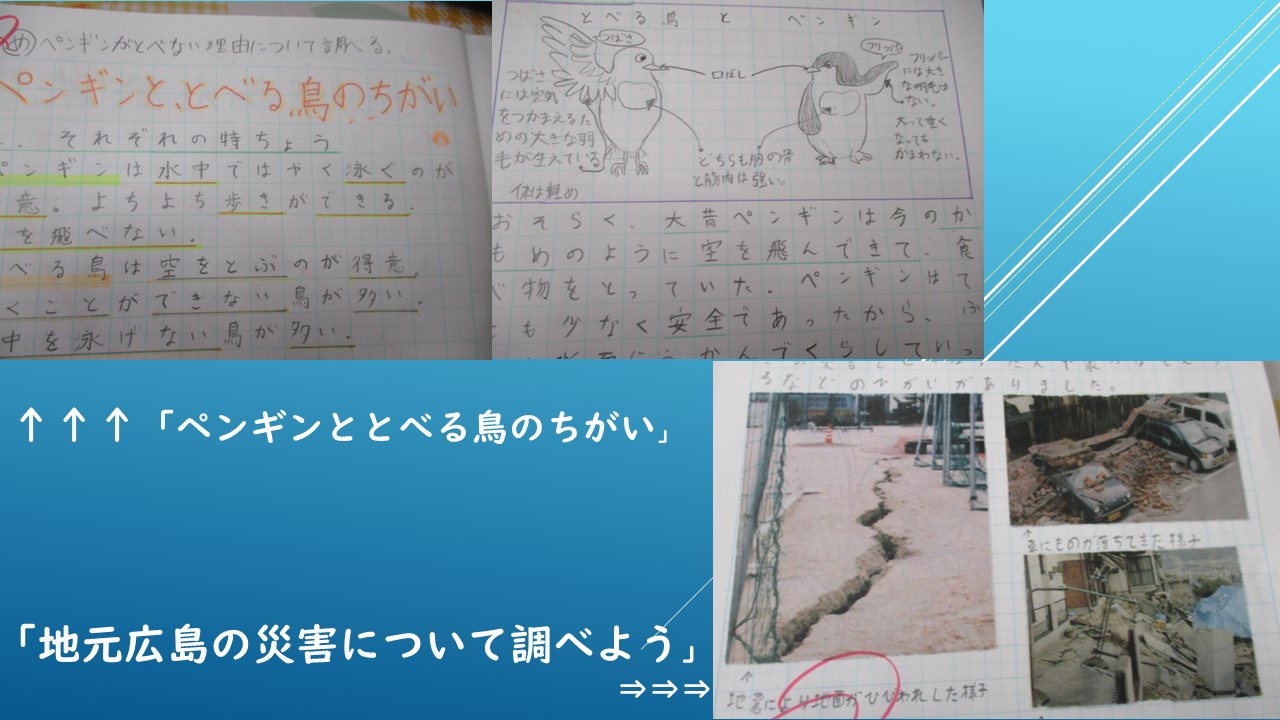 め ペンギンがとべない理由について調べる。
ペンギンと、とべる鳥のちがい
それぞれの特ちょう
ペンギンは水中ではやく泳ぐのが
意。よちよち歩きができる。
を飛べない。
べる鳥は空をとぶのが得意。
くことができない鳥が多い。
中を泳げない鳥が多い。
とべる鳥とペンギン
つばさ
フリッパー
口ばし
つばさ
には空気
をつかまえるた
めの大きな羽
毛が生えている
体は軽め
どちらも胸の骨
と筋肉は強い。
フリッパー
には大き
な羽毛は
ない。
太って重く
なっても
かまわない。
おそらく、大昔ペンギンは今のか
もめのように空を飛んできて、食
べ物をとっていた。ペンギンはて
も少なく安全であったから、
うかんでくらしていっ
↑↑↑「ペンギンととべる鳥のちがい」
「地元広島の災害について調べよう」
⇒⇒⇒
ろなどのひがいがありました。
↑
車にものが落ちてきた様子
↑
地震により地面がひびわれした様子